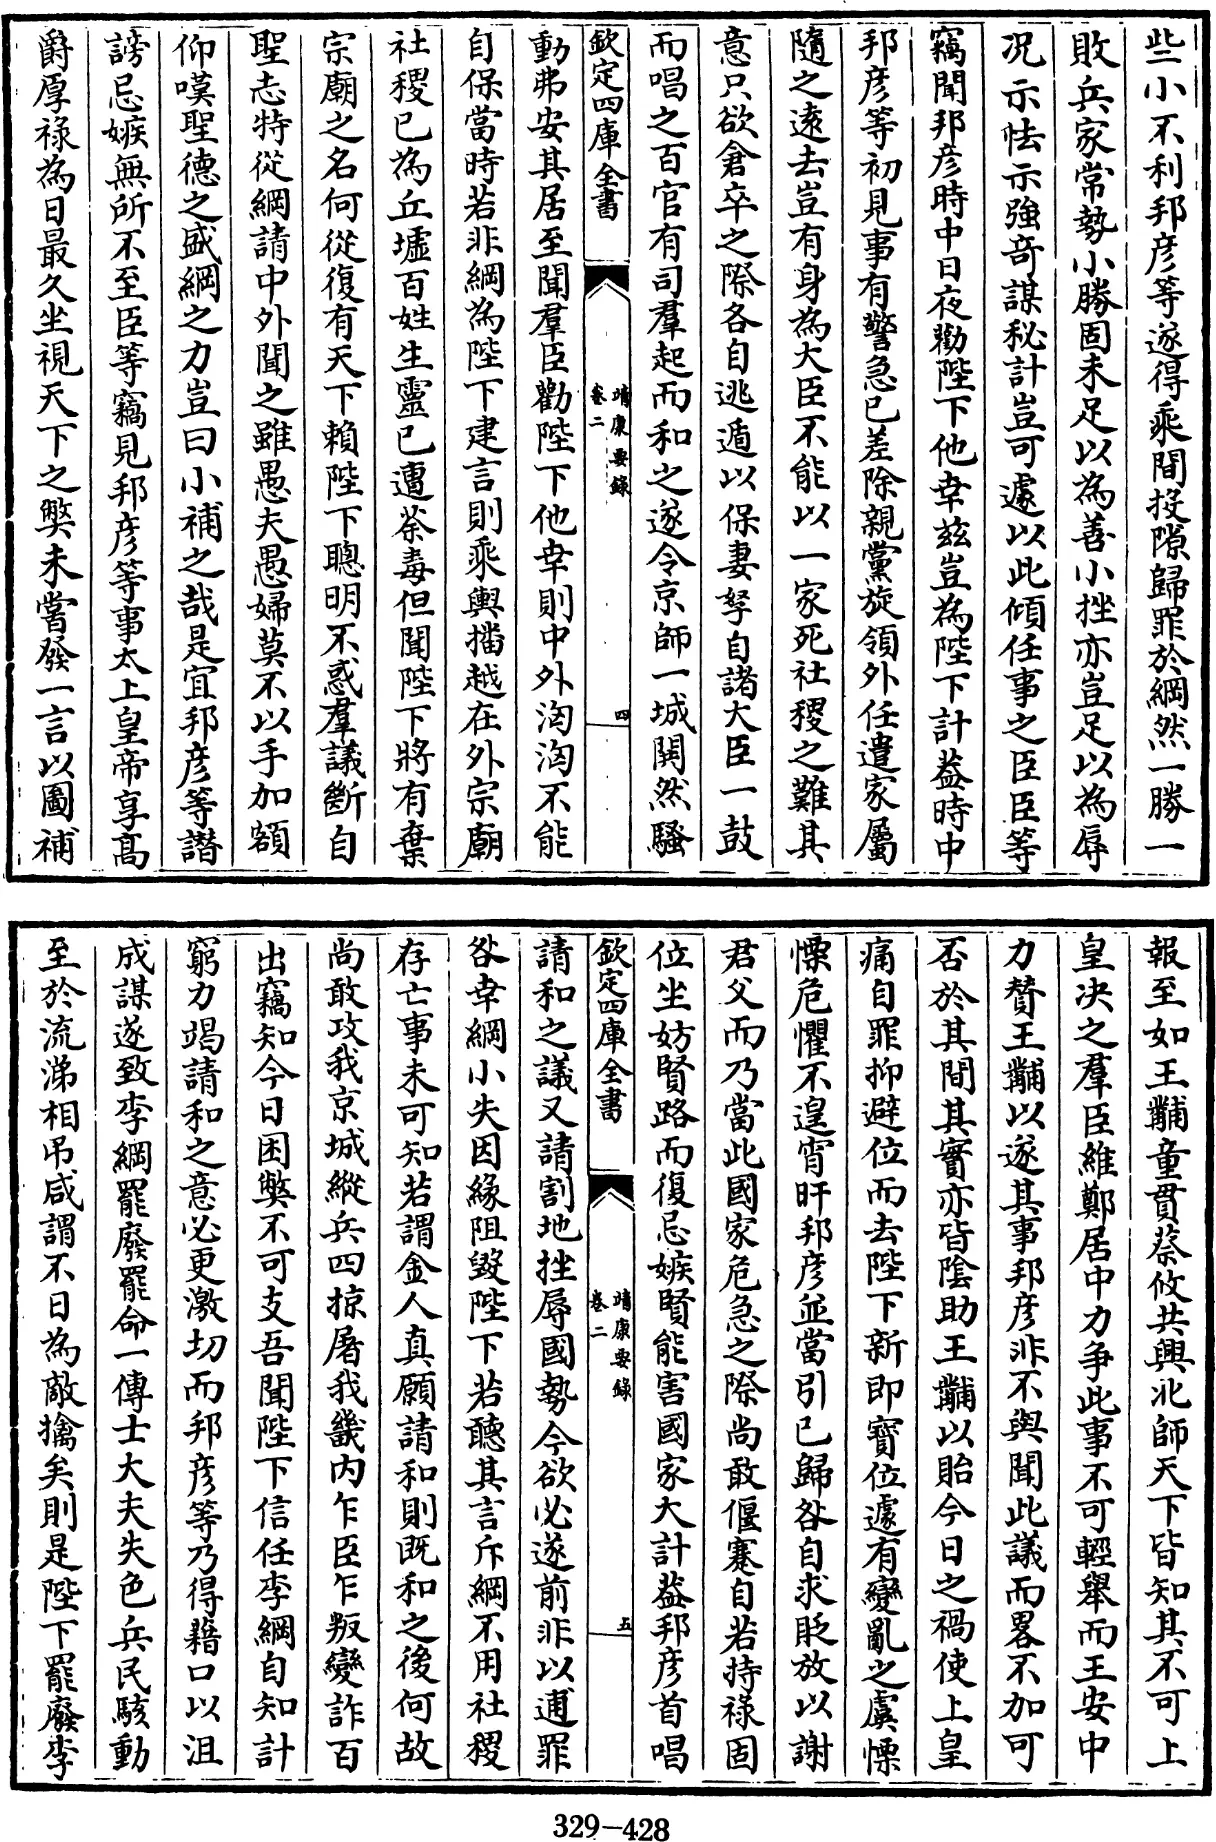 些小不利邦彦等遂得乘間投隙歸罪於綱然一勝一
敗兵家常勢小勝固未足以為善小挫亦豈足以為辱
况示怯示強奇謀秘計豈可遽以此傾任事之臣臣等
竊聞邦彦時中日夜勸陛下他幸兹豈為陛下計葢時中
邦彦等初見事有警急已差除親黨旋領外任遣家屬
隨之逺去豈有身為大臣不能以一家死社稷之難其
意只欲倉卒之際各自逃遁以保妻孥自諸大臣一鼓
而唱之百官有司羣起而和之遂令京師一城閧然騷
欽定四庫全書
靖康要錄
卷二
四
動弗安其居至聞羣臣勸陛下他幸則中外洶洶不能
自保當時若非綱為陛下建言則乘輿播越在外宗廟
社稷已為丘墟百姓生靈已遭荼毒但聞陛下將有棄
宗廟之名何從復有天下賴陛下聰明不惑羣議斷自
聖志特從綱請中外聞之雖愚夫愚婦莫不以手加額
仰嘆聖德之盛綱之力豈曰小補之哉是宜邦彦等譛
謗忌嫉無所不至臣等竊見邦彦等事太上皇帝享髙
爵厚祿為日最久坐視天下之弊未嘗發一言以圖補
報至如王黼童貫蔡攸共興北師天下皆知其不可上
皇决之羣臣維鄭居中力争此事不可輕舉而王安中
力賛王黼以遂其事邦彦非不與聞此議而畧不加可
否於其間其實亦皆陰助王黼以貽今日之禍使上皇
痛自罪抑避位而去陛下新即寳位遽有變亂之虞慄
慄危懼不遑宵旰邦彦並當引已歸咎自求貶放以謝
君父而乃當此國家危急之際尚敢偃蹇自若持祿固
位坐妨賢路而復忌嫉賢能害國家大計葢邦彦首唱
欽定四庫全書
靖康要錄
卷二
五
請和之議又請割地挫辱國勢今欲必遂前非以逭罪
咎幸綱小失因緣阻毀陛下若聽其言斥綱不用社稷
存亡事未可知若謂金人真願請和則既和之後何故
尚敢攻我京城縱兵四掠屠我畿内乍臣乍叛變詐百
出竊知今日困弊不可支吾聞陛下信任李綱自知計
窮力竭請和之意必更激切而邦彦等乃得藉口以沮
成謀遂致李綱罷廢罷命一傳士大夫失色兵民駭動
至於流涕相弔咸謂不日為敵擒矣則是陛下罷廢李
329-428